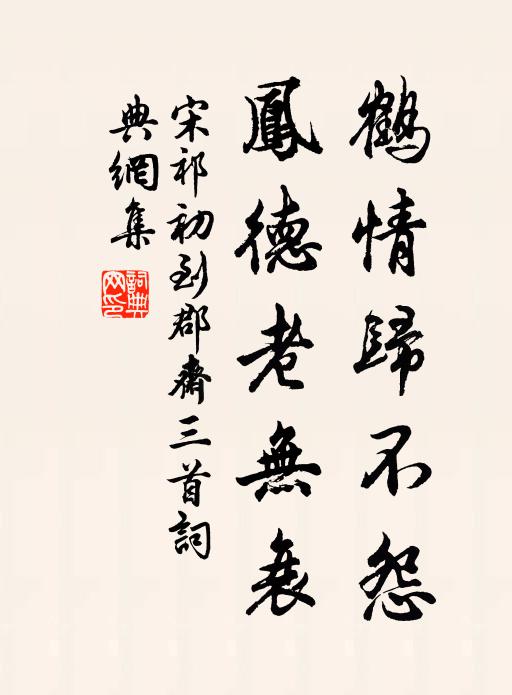 鶴情歸不怨
鳳德老無衰
宋祁初到郡齋三首詞
典網集
詞典網印